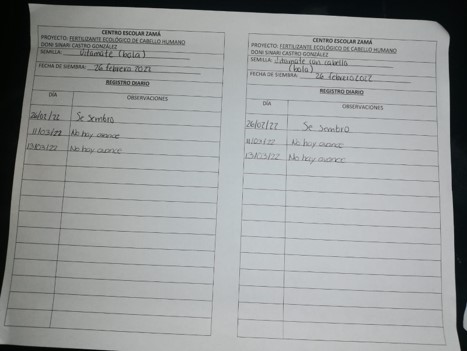 CENTRO ESCOLAR ZAMÁ
PROYECTO: FERTILIZANTE ECOLÓGICO DE CABELLO HUMANO
DONI SINARI CASTRO GONZÁLEZ
SEMILLA: Jitomate (bola)
FECHA DE SIEMBRA: 26 febrero 2022
REGISTRO DIARIO
DÍA OBSERVACIONES
26/02/22 Se sembró
11/03/22 No hay avance
13/03/22 No hay avance
CENTRO ESCOLAR ZAMÁ
PROYECTO: FERTILIZANTE ECOLÓGICO DE CABELLO HUMANO
DONI SINARI CASTRO GONZÁLEZ
SEMILLA: Jitomate con cabello
(bola)
FECHA DE SIEMBRA: 26 febrero 2022
REGISTRO DIARIO
DÍA OBSERVACIONES
26/02/22 Se sembró
11/03/22 No hay avance
13/03/22 No hay avance